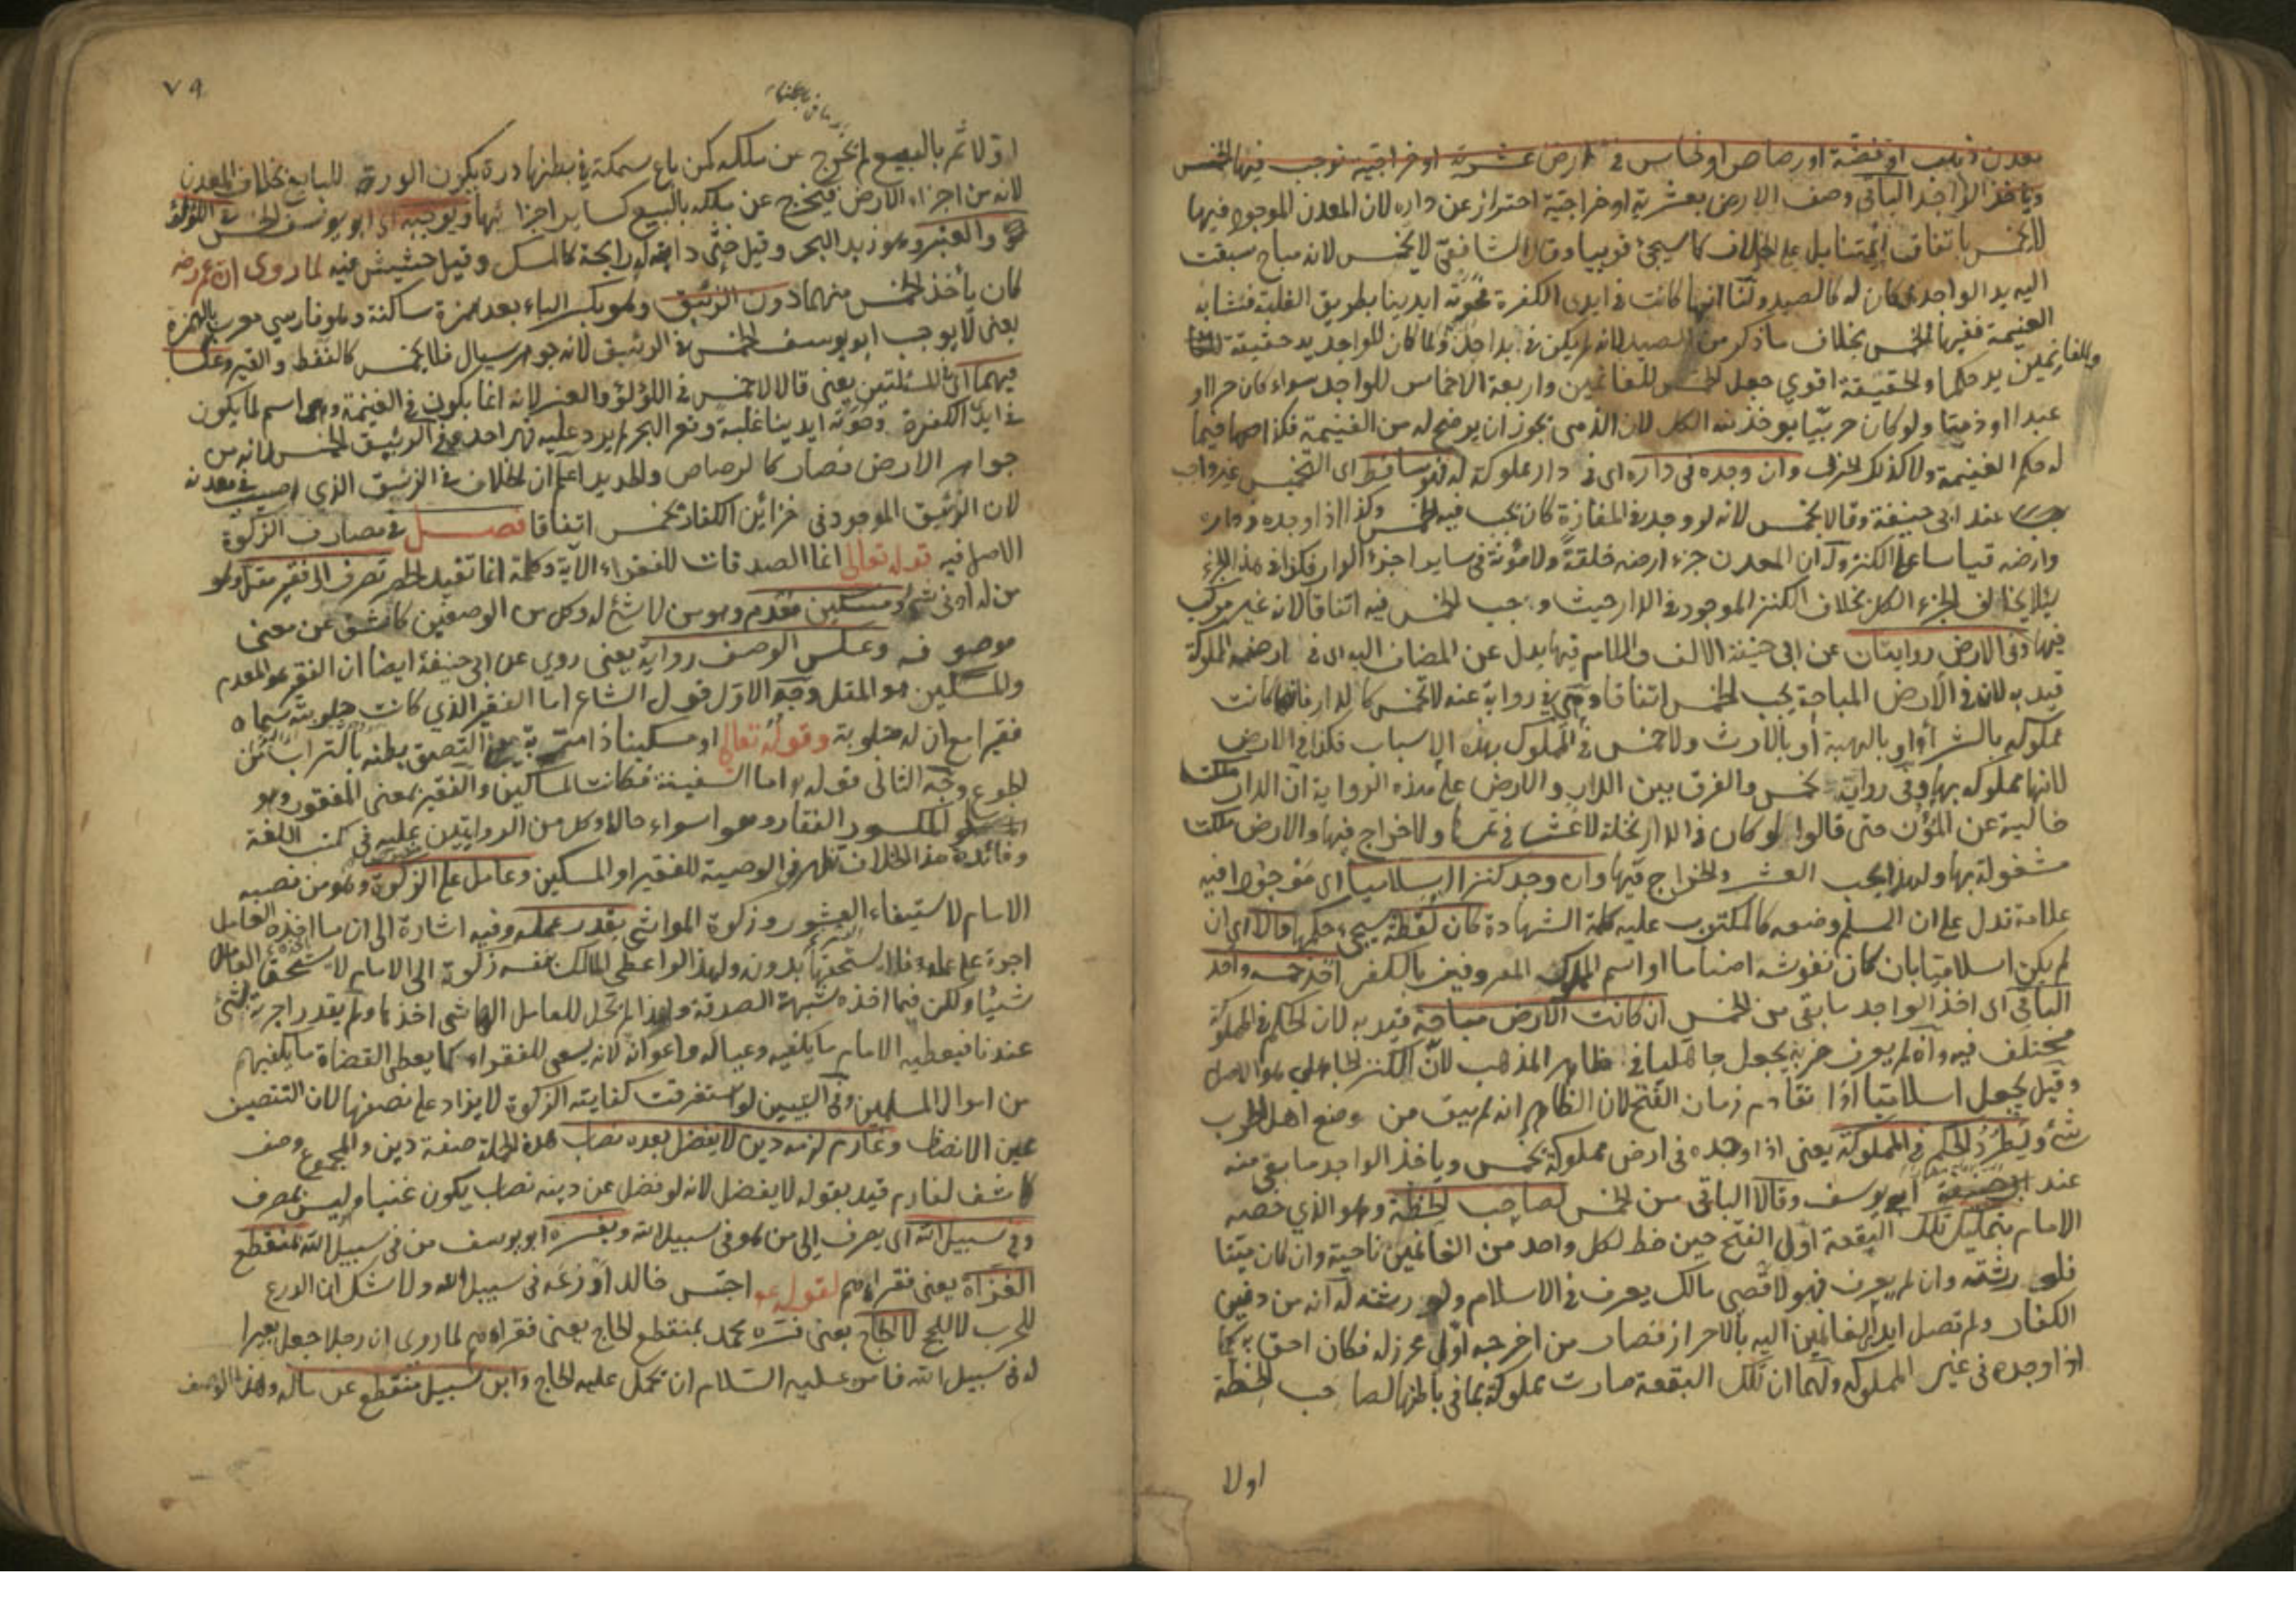 بمعدن ذهب او فضة او رصاص او نحاس في ارض عشرية او خراجية نوجب فيها الخمس
وياخذ الواجد الباقي وصف الارض بعشرية او خراجية احتراز عن داره لان المعدن الموجود فيها
لا يخمس باتفاق ائمتنا بل على الخلاف كما سيجئ قريبا وقال الشافعي لا يخمس لانه مباح سبقت
اليه يد الواجد فكان له كالصيد ولنا انها كانت في ايدي الكفرة حوته ايدينا بطريق الغلبة فتشابه
الغنيمة ففيها الخمس بخلاف ما ذكر من الصيد لانه لم يكن في يد احد ولما كان للواجد يد حقيقة
وللغانمين يد حكما والحقيقة اقوي جعل الخمس للغانمين واربعة الاخماس للواجد سواء كان حرا او
عبدا او ذميا ولو كان حربيا يوخذ منه الكل لان الذمي يجوز ان يرضخ له من الغنيمة فكذا فيما
له حكم الغنيمة ولا كذلك الحربي وان وجده في داره اي في دار مملوكة له فهو ساقط اي التخميس غير واجب
عند ابي حنيفة وقالا يخمس لانه لو وجد في المفازة كان يجب فيه الخمس وكذا اذا وجده في داره
وارضه قياسا على الكنز وله ان المعدن جزء ارضه خلقة ولا مؤنة في ساير اجزاء الدار فكذا في هذا الجزء
لئلا يخالف الجزء الكل بخلاف الكنز الموجود في الدار حيث وجب الخمس فيه اتفاقا لانه غير مركب
فيها وفي الارض روايتان عن ابي حنيفة الالف واللام فيها بدل عن المضاف اليه اي في ارضه المملوكة
قيد به لانه في الارض المباحة يجب الخمس اتفاقا في رواية عنه لا تخمس كالدار فانها كانت
مملوكه بالشراء او بالهبة او بالارث ولا خمس في المملوك بهذه الاسباب فكذا في الارض
لانها مملوكه بها وفي رواية يخمس والفرق بين الدار والارض على هذه الرواية ان الدار ملكت
خالية عن المؤن حتى قالوا لو كان في الدار نخلة لا عشر في ثمرها ولا خراج فيها والارض ملكت
مشغولة بها ولهذا يجب العشر والخراج فيها وان وجد كنزا اسلاميا اي موجودا فيه
علامة تدل على ان المسلم وضعه كالمكتوب عليه كلمة الشهادة كان لقطة سيجئ حكمها والا اي ان
لم يكن اسلاميا بان كان نقوشه اصناما او اسم الملوك المعروفين بالكفر اخذ خمسه واخذ
الباقي اي اخذ الواجد ما بقي من الخمس ان كانت الارض مباحة قيد به لان الحكم في المملوكة
مختلف فيه وان لم يعرف ضربه يجعل جاهليا في ظاهر المذهب لان الكنز الجاهلي هو الاصل
وقيل يجعل اسلاميا اذا تقادم زمان الفتح لان الظاهر انه لم يبق من وضع اهل الحرب
شئ ويطرد الحكم في المملوكة يعني اذا وجده في ارض مملوكة يخمس وياخذ الواجد ما بقي منه
عند ابي يوسف وقالا الباقي من الخمس لصاحب الخطة وهو الذي خصه
الامام بتمليك تلك البقعة اول الفتح حين خط لكل واحد من الغانمين ناحية وان كان ميتا
فلورثته وان لم يعرف فهو لاقصى مالك يعرف في الاسلام ولورثته له انه من دفين
الكفار ولم تصل ايدي الغانمين اليه بالاحراز فصار من اخرجه اول محرز له فكان احق به كما
اذا وجده في غير المملوكه ولهما ان تلك البقعة صارت مملوكة بما في باطنها لصاحب الخطة
اولا
٧٩
اولا ثم بالبيع لم تخرج عن ملكه كمن باع سمكة في بطنها درة يكون الدرة للبايع بخلاف المعدن
لانه من اجزاء الارض فيخرج عن ملكه بالبيع كساير اجزائها ويوجبه اي ابو يوسف الخمس في اللؤلؤ
والعنبر وهو زبد البحر وقيل خثي دابة له رايحة كالمسك وقيل حشيش فيه لما روي ان عمر رضه
كان يأخذ الخمس منهما دون الزئبق وهو بكسر الباء بعد همزة ساكنة وهو فارسي معرب بالهمزة
يعني لا يوجب ابو يوسف الخمس في الزئبق لانه جوهر سيال فلا يخمس كالنفط والقير وعكسا
فيهما اي في المسئلتين يعني قالا لا خمس في اللؤلؤ والعنبر لانه انما يكون في الغنيمة وهي اسم لما يكون
في ايدي الكفرة وحوته ايدينا غلبة وقعر البحر لم يرد عليه قهر احد وفي الزئبق الخمس لانه من
جواهر الارض فصار كالرصاص والحديد اعلم ان الخلاف في الزئبق الذي اصيب في معدنه
لان الزئبق الموجود في خزائن الكفار يخمس اتفاقا فصل في مصارف الزكوة
الاصل فيه قوله تعالى انما الصدقات للفقراء الاية وكلمة انما تفيد الحصر تصرف الى فقير مقل وهو
من له ادنى شئ ومسكين معدم وهو من لا شئ له وكل من الوصفين كاشف عن معنى
موصوفه وعكس الوصف رواية يعني روي عن ابي حنيفة ايضا ان الفقير هو المعدم
والمسكين هو المقل وجه الاول قول الشاعر اما الفقير الذي كانت حلوبته سماه
فقيرا مع ان له حلوبة وقوله تعالى او مسكينا ذا متربة التصق بطنه بالتراب من
الجوع وجه الثاني قوله اما السفينة فكانت لمساكين والفقير بمعنى المفقور وهو
المكسور الفقار وهو اسواء حالا وكل من الروايتين عليه في كتب اللغة
وفائدة هذا الخلاف تظهر في الوصية للفقير او المسكين وعامل على الزكوة وهو من نصبه
الامام لاستيفاء العشور وزكوة المواشي بقدر عمله وفيه اشارة الى ان ما اخذه العامل
اجرة على عمله فلا يستحقها بدونه ولهذا لو اعطى المالك بنفسه زكوة الى الامام لا يستحق العامل
شيئا ولكن فيما اخذه شبهة الصدقة ولهذا لم تحل للعامل الهاشمي اخذها ولم يقدر اجرته بشئ
عندنا فيعطيه الامام ما يكفيه وعياله واعوانه لانه يسعى للفقراء كما يعطي القضاة ما يكفيهم
من اموال المسلمين وفي التبيين لو استغرقت كفايته الزكوة لا يزاد على نصفها لان التنصيف
عين الانصاف وغارم لزمه دين لا يفضل بعده نصاب هذه الجملة صفة دين والمجموع وصف
كاشف لغارم قيد بقوله لا يفضل لانه لو فضل عن دينه نصاب يكون غنيا وليس بمصرف
وفي سبيل الله اي يصرف الى من هو في سبيل الله ويفسره ابو يوسف من في سبيل الله بمنقطع
الغزاة يعني فقراءهم لقوله احتبس خالد ادرعه في سبيل الله ولا شك ان الدرع
للحرب لا للحج لا الحاج يعني فسره محمد بمنقطع الحاج يعني فقراءهم لما روي ان رجلا جعل بعيرا
له في سبيل الله فامره عليه السلام ان يحمل عليه الحاج وابن سبيل منقطع عن ماله وهذا الوصف